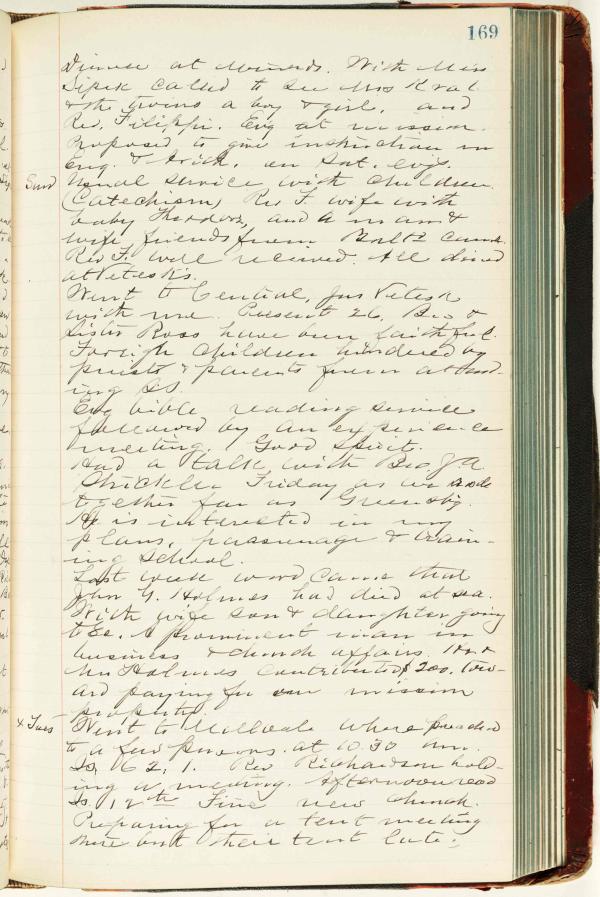 169
Dinner at Minerds. With Miss
Sipek called to see Mrs Kral
& the twins a boy & girl, and
Rev. Filippi. Evg at mission.
Proposed to give instruction in
Eng. & Arith. on Sat. evgs.
Sund Usual service with children
(Catechism) Rev F. wife with
baby Theodore, and a man &
wife, friends from Boltz came.
Rev F. well received. All dined
at Veteskis.
Went to Central, Jas Vetesk
with me. Present 26. Bro &
Sister Ross have been faithful.
Foreign children hindered by
priests & parents from attend-
ing SS.
Evg bible reading service
followed by an experience
meeting. Good spirit.
Had a talk with Bro. J. A
Strickler Friday as we rode
together far as Greensbg.
He is interested in my
plans, parsonage & train-
ing school.
Last week word came that
John G. Holmes had died at sea.
With wife son & daughter going
to Eu. A prominent man in
business & church affairs. He &
Mrs Holmes contributed $200. tow-
ard paying for our mission
property.
x Tues Went to Millvale where preached
to a few persons. at 10.30 am.
Is. 62, 1. Rev Richardson hold-
ing a meeting. Afternoon read
Is. 12th Fine new church.
Preparing for a tent meeting
here but their tent late.